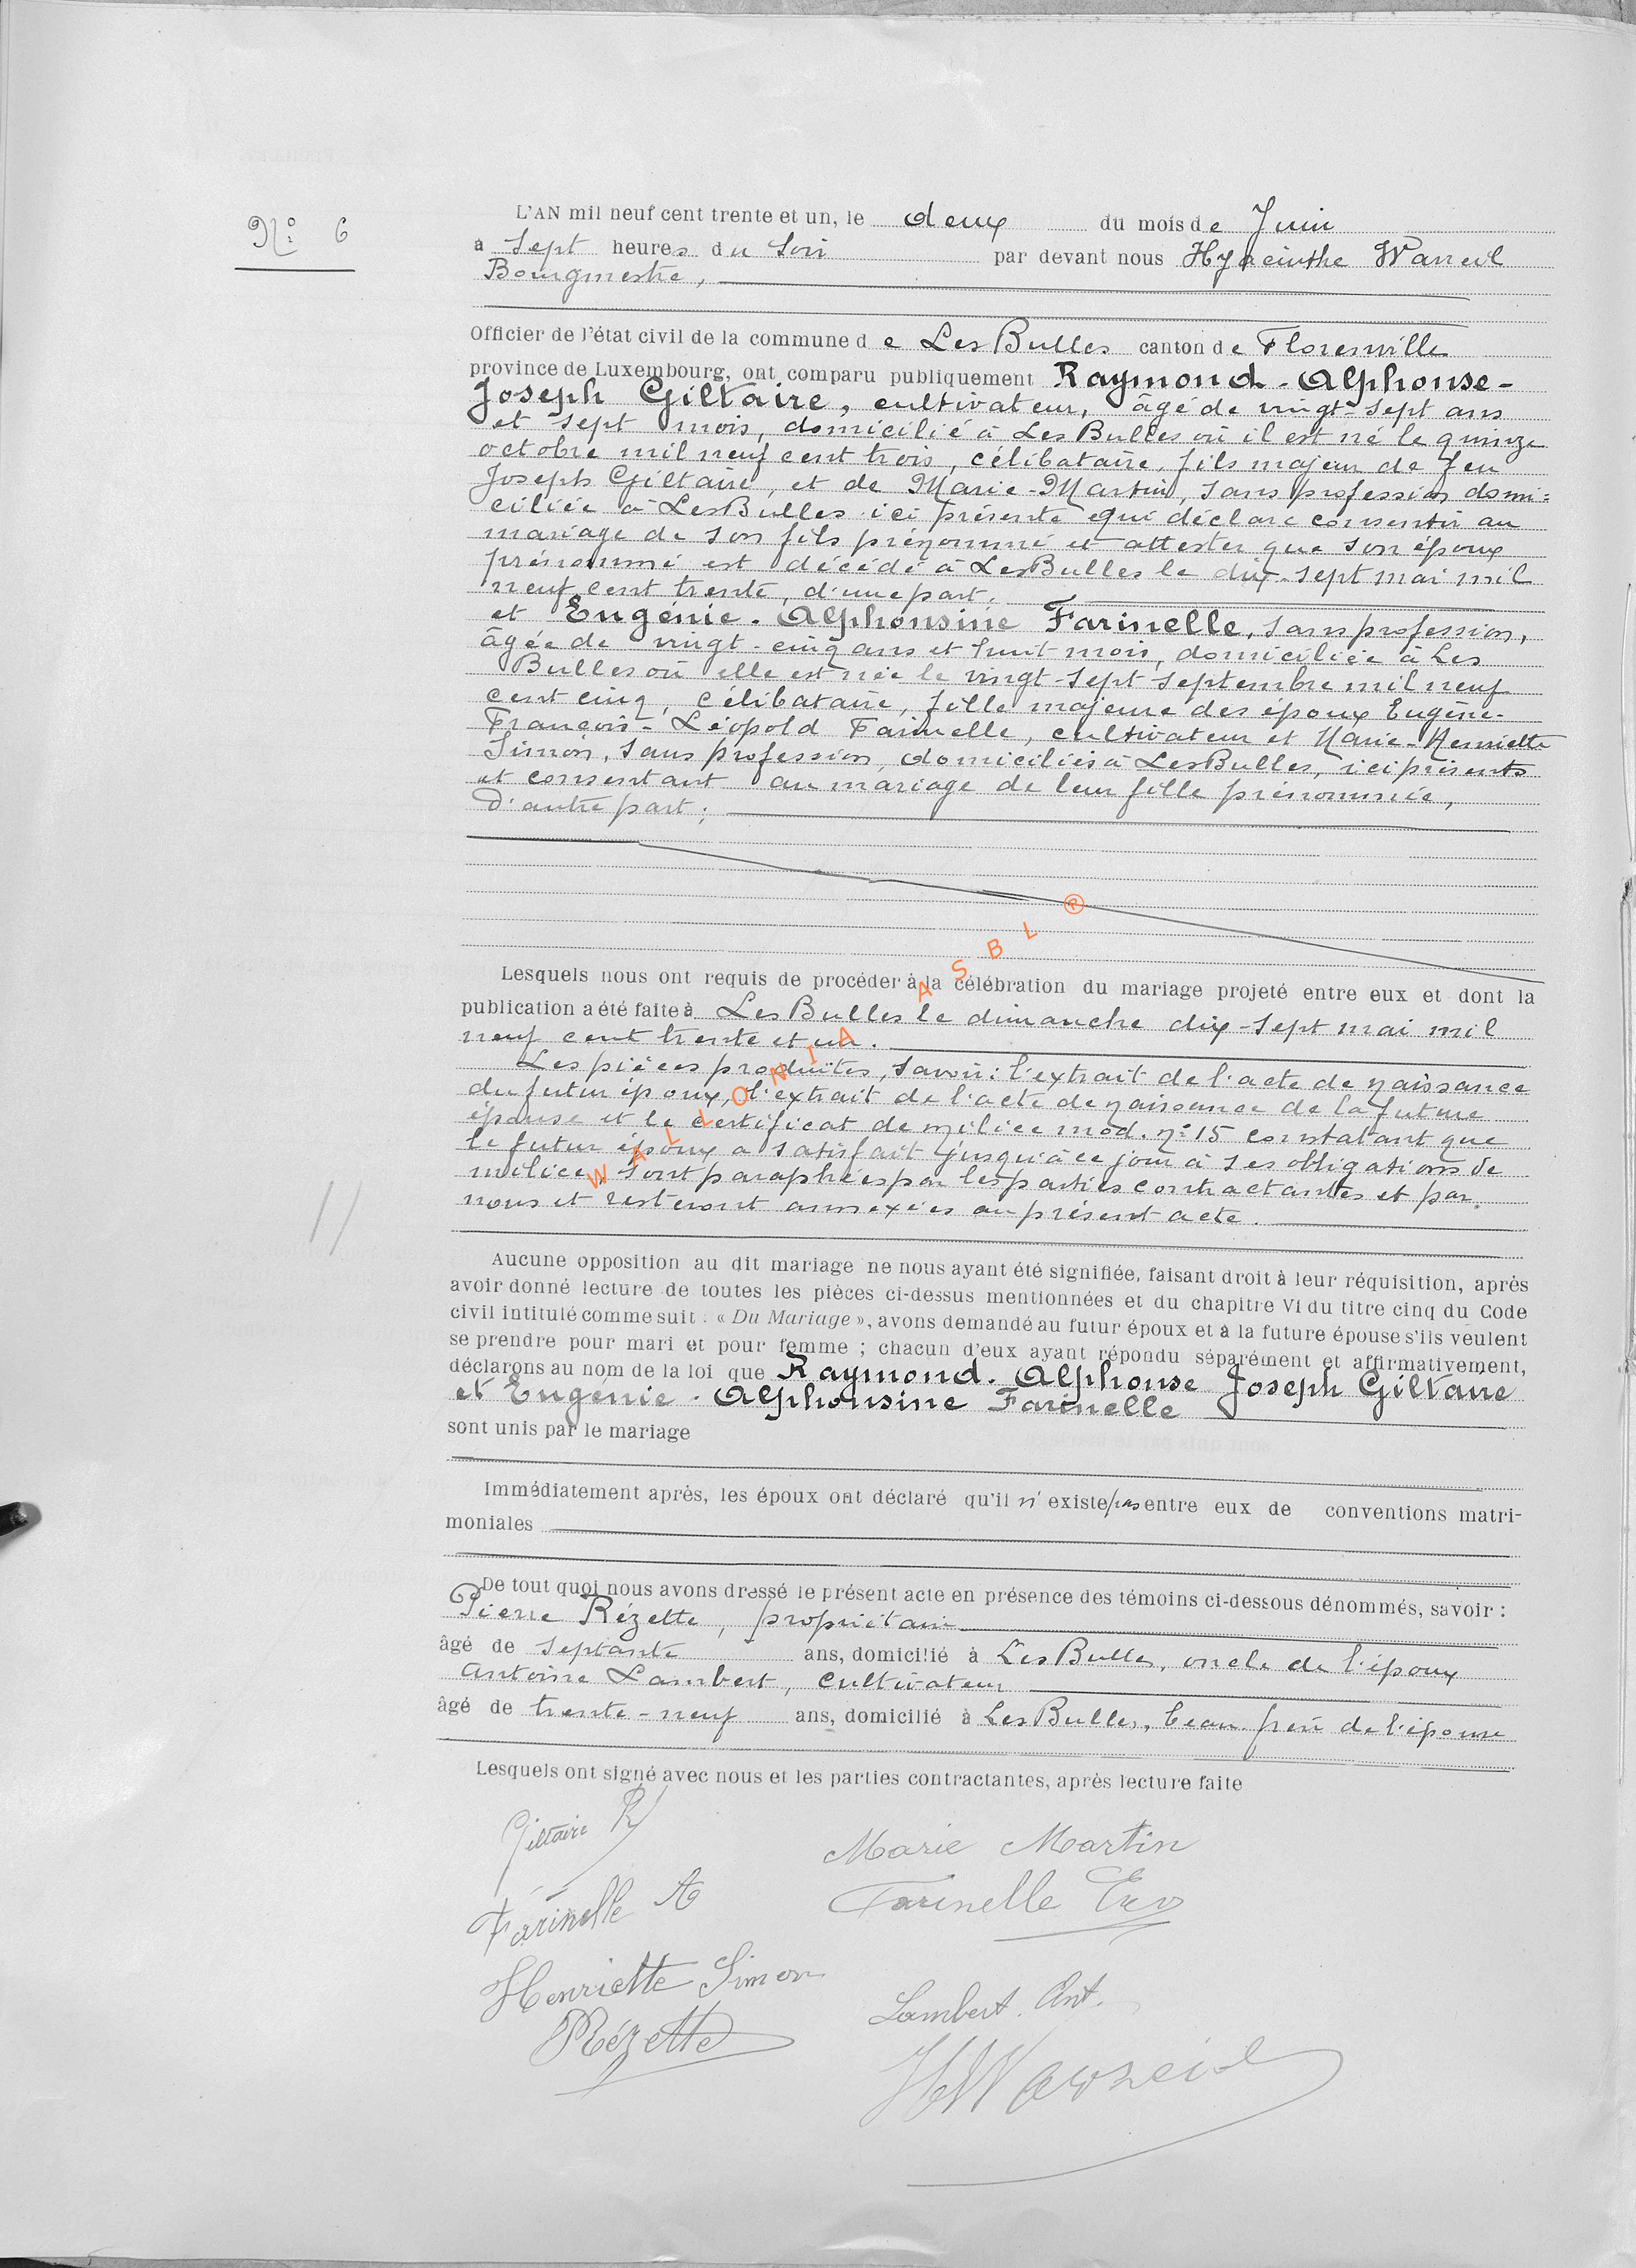 N° 6
L'AN mil neuf cent trente et un, le deux du mois de Juin
à sept heures du soir par devant nous Hyacinthe
Bourgmestre,
Officier de l'état civil de la commune de Les Bulles canton de Florenville
province de Luxembourg, ont comparu publiquement Raymond-Alphonse-
Joseph Giltaire, cultivateur, âgé de vingt-sept ans
et sept mois, domicilié à Les Bulles où il est né le quinze
octobre mil neuf cent trois, célibataire, fils majeur de feu
Joseph Giltaire, et de Marie-Martin, sans profession domi=
ciliée à Les Bulles ici présente qui déclare consentir au
mariage de son fils prénommé et attester que son époux
prénommé est décédé à Les Bulles le dix-sept mai mil
neuf cent trente, d'une part.
et Eugénie-Alphonsine Farinelle, sans profession,
âgée de vingt-cinq ans et huit mois, domiciliée à Les
Bulles où elle est née le vingt-sept septembre mil neuf
cent cinq, célibataire, fille majeure des époux Eugène-
François-Léopold Farinelle, cultivateur et Marie-Henriette
Simon, sans profession, domiciliés à Les Bulles, ici présents
et consentant au mariage de leur fille prénommée,
D'autre part;
Lesquels nous ont requis de procéder à la célébration du mariage projeté entre eux et dont la
publication a été faite à Les Bulles le dimanche dix-sept mai mil
neuf cent trente et un.
Les pièces produites, savoir: l'extrait de l'acte de naissance
du futur époux, l'extrait de l'acte de naissance de la future
épouse et le certificat de milice mod. n° 15 constatant que
le futur époux a satisfait jusqu'à ce jour à ses obligations de
milice, sont paraphées par les parties contractantes et par
nous et resteront annexées au présent acte.
WALLONIA ASBL ®
Aucune opposition au dit mariage ne nous ayant été signifiée, faisant droit à leur réquisition, après
avoir donné lecture de toutes les pièces ci-dessus mentionnées et du chapitre VI du titre cinq du Code
civil intitulé comme suit : « Du Mariage », avons demandé au futur époux et à la future épouse s'ils veulent
se prendre pour mari et pour femme ; chacun d'eux ayant répondu séparément et affirmativement,
déclarons au nom de la loi que Raymond-Alphonse Joseph Giltaire
et Eugénie-Alphonsine Farinelle
sont unis par le mariage
Immédiatement après, les époux ont déclaré qu'il n'existe pas entre eux de conventions matri-
moniales
De tout quoi nous avons dressé le présent acte en présence des témoins ci-dessous dénommés, savoir :
Pierre Rézette, propriétaire
âgé de septante ans, domicilié à Les Bulles, oncle de l'époux
Antoine Lambert, cultivateur
âgé de trente-neuf ans, domicilié à Les Bulles, beau-frère de l'épouse
Lesquels ont signé avec nous et les parties contractantes, après lecture faite
Giltaire R
Marie Martin
Farinelle A
Farinelle
Henriette Simon
Lambert. Ant.
Rézette